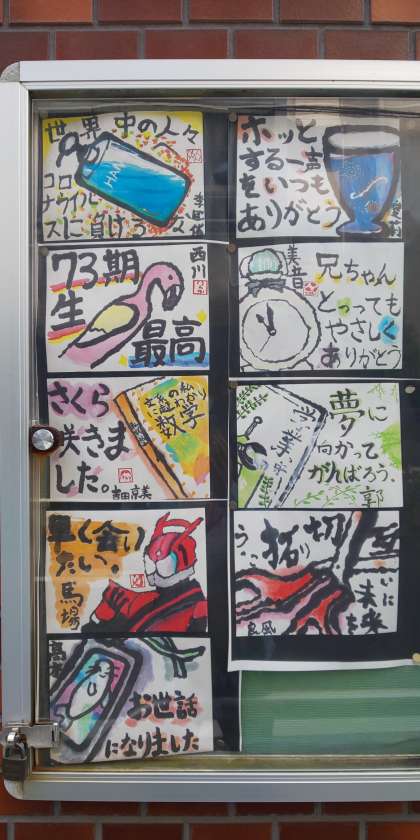 世界中の人々
コロ
ナウイル
スに負けるな
HAN
ホッと
する一声
をいつも
ありがとう
73期
生
最高
西川
美音
兄ちゃん
とっても
やさしく
ありがとう
さくら
咲きま
した。
数学
吉田京美
夢に
向かって
がんばろう。
郭
早く会い
たい。
馬場
切り
拓
互いに
未来
を
良風
お世話
になりました